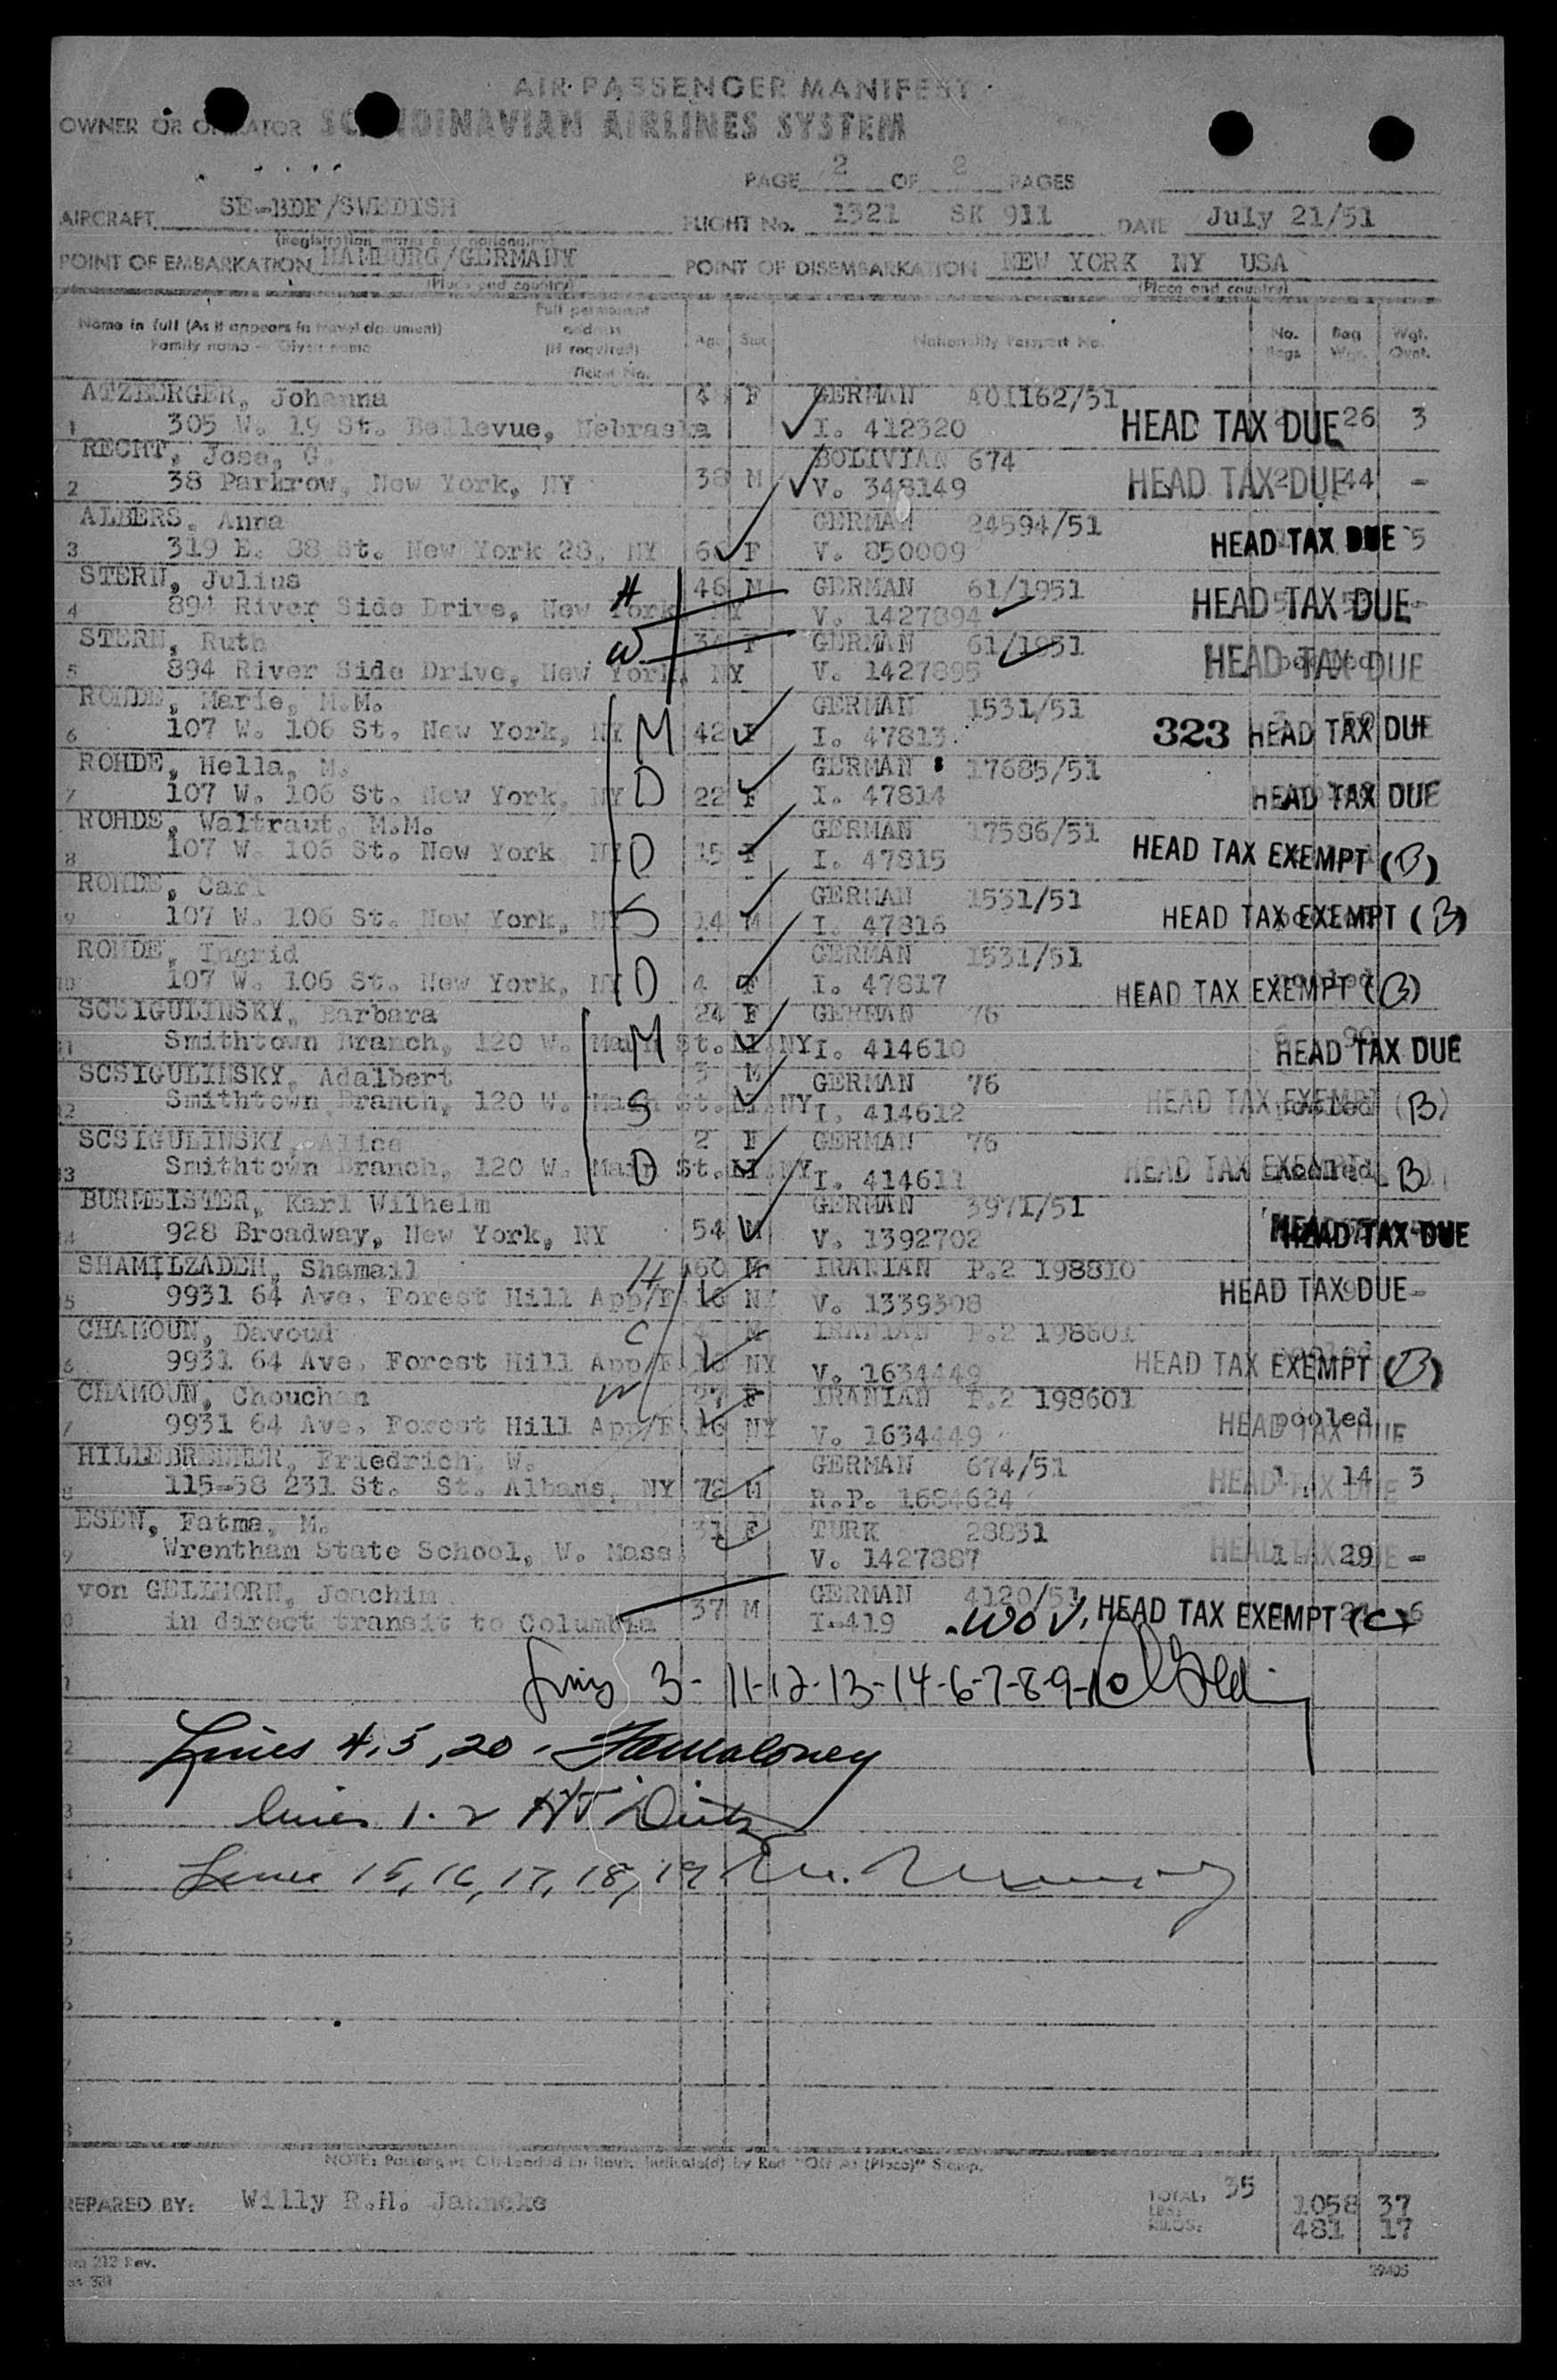 AIR PASSENGER MANIFEST
OWNER OR OPERATOR SCANDINAVIAN AIRLINES SYSTEM
PAGE 2 OF 2 PAGES
AIRCRAFT SE-BDF/SWEDISH FLIGHT No. 1321 SK 911 DATE July 21/51
(Registration marks and nationality)
POINT OF EMBARKATION HAMBURG/GERMANY POINT OF DISEMBARKATION NEW YORK NY USA
(Place and country) (Place and country)
Name in full (As it appears in travel document) Full permanent address (If required) Age Sex Nationality Passport No. No. Bags Bag Wgt. Wgt. Ovnt.
Family name - Given name Ticket No.
ATZBERGER, Johanna 4 F GERMAN A01162/51
1 305 W. 19 St. Bellevue, Nebraska I. 412320 HEAD TAX DUE 26 3
RECHT, Jose, G. BOLIVIAN 674
2 38 Parkrow, New York, NY 38 M V. 348149 HEAD TAX DUE 2 44 -
ALBERS, Anna GERMAN 24594/51
3 319 E. 88 St. New York 28, NY 6 F V. 850009 HEAD TAX DUE 5
STERN, Julius H 46 M GERMAN 61/1951
4 894 River Side Drive, New York, NY V. 1427894 HEAD TAX DUE -
STERN, Ruth W 34 F GERMAN 61/1951
5 894 River Side Drive, New York, NY V. 1427895 HEAD TAX DUE
ROHDE, Marie, M.M. GERMAN 1531/51
6 107 W. 106 St. New York, NY M 42 F I. 47813 323 HEAD TAX DUE
ROHDE, Hella, M. GERMAN 17685/51
7 107 W. 106 St. New York, NY D 22 F I. 47814 HEAD TAX DUE
ROHDE, Waltraut, M.M. GERMAN 17586/51
8 107 W. 106 St. New York NY D 15 F I. 47815 HEAD TAX EXEMPT (B)
ROHDE, Carl GERMAN 1531/51
9 107 W. 106 St. New York, NY S 14 M I. 47816 HEAD TAX EXEMPT (B)
ROHDE, Ingrid GERMAN 1531/51
10 107 W. 106 St. New York, NY D 4 F I. 47817 pooled HEAD TAX EXEMPT (B)
SCSIGULINSKY, Barbara 24 F GERMAN 76
11 Smithtown Branch, 120 W. Main St. LI NY M I. 414610 6 90 HEAD TAX DUE
SCSIGULINSKY, Adalbert 3 M GERMAN 76
12 Smithtown Branch, 120 W. Main St. LI NY S I. 414612 HEAD TAX EXEMPT pooled (B)
SCSIGULINSKY, Alice 2 F GERMAN 76
13 Smithtown Branch, 120 W. Main St. LI NY D I. 414611 HEAD TAX EXEMPT pooled B
BURMEISTER, Karl Wilhelm GERMAN 3971/51
14 928 Broadway, New York, NY 54 M V. 1392702 HEAD TAX DUE
SHAMILZADEH, Shamail H 60 M IRANIAN P.2 198810
5 9931 64 Ave. Forest Hill App/F 16 NY V. 1339308 HEAD TAX DUE -
CHAMOUN, Davoud C 4 M IRANIAN P.2 198601
6 9931 64 Ave. Forest Hill App/F 16 NY V. 1634449 pooled HEAD TAX EXEMPT (B)
CHAMOUN, Chouchan W 27 F IRANIAN P.2 198601
7 9931 64 Ave. Forest Hill App/F 16 NY V. 1634449 pooled HEAD TAX DUE
HILLEBREMER, Friedrich, W. GERMAN 674/51
8 115-58 231 St. St. Albans, NY 72 M R.P. 1684624 HEAD TAX DUE 1 14 3
ESEN, Fatma, M. 31 F TURK 28831
9 Wrentham State School, W. Mass V. 1427887 HEAD TAX DUE 1 29 -
von GELLHORN, Joachim GERMAN 4120/51
0 in direct transit to Columbia 37 M I-419 WOV. HEAD TAX EXEMPT (C) 6
3-11-12-13-14-6-7-8-9-10
Lines 4, 5, 20 - Maloney
lines 1-2
Lines 15, 16, 17, 18, 19
NOTE: Passengers Off-Loaded En Route Indicate(d) by Red "Off At (Place)" Stamp.
PREPARED BY: Willy R.H. Jahncke TOTAL, 35
LBS: 1058 37
KILOS: 481 17
212 Rev.
29405